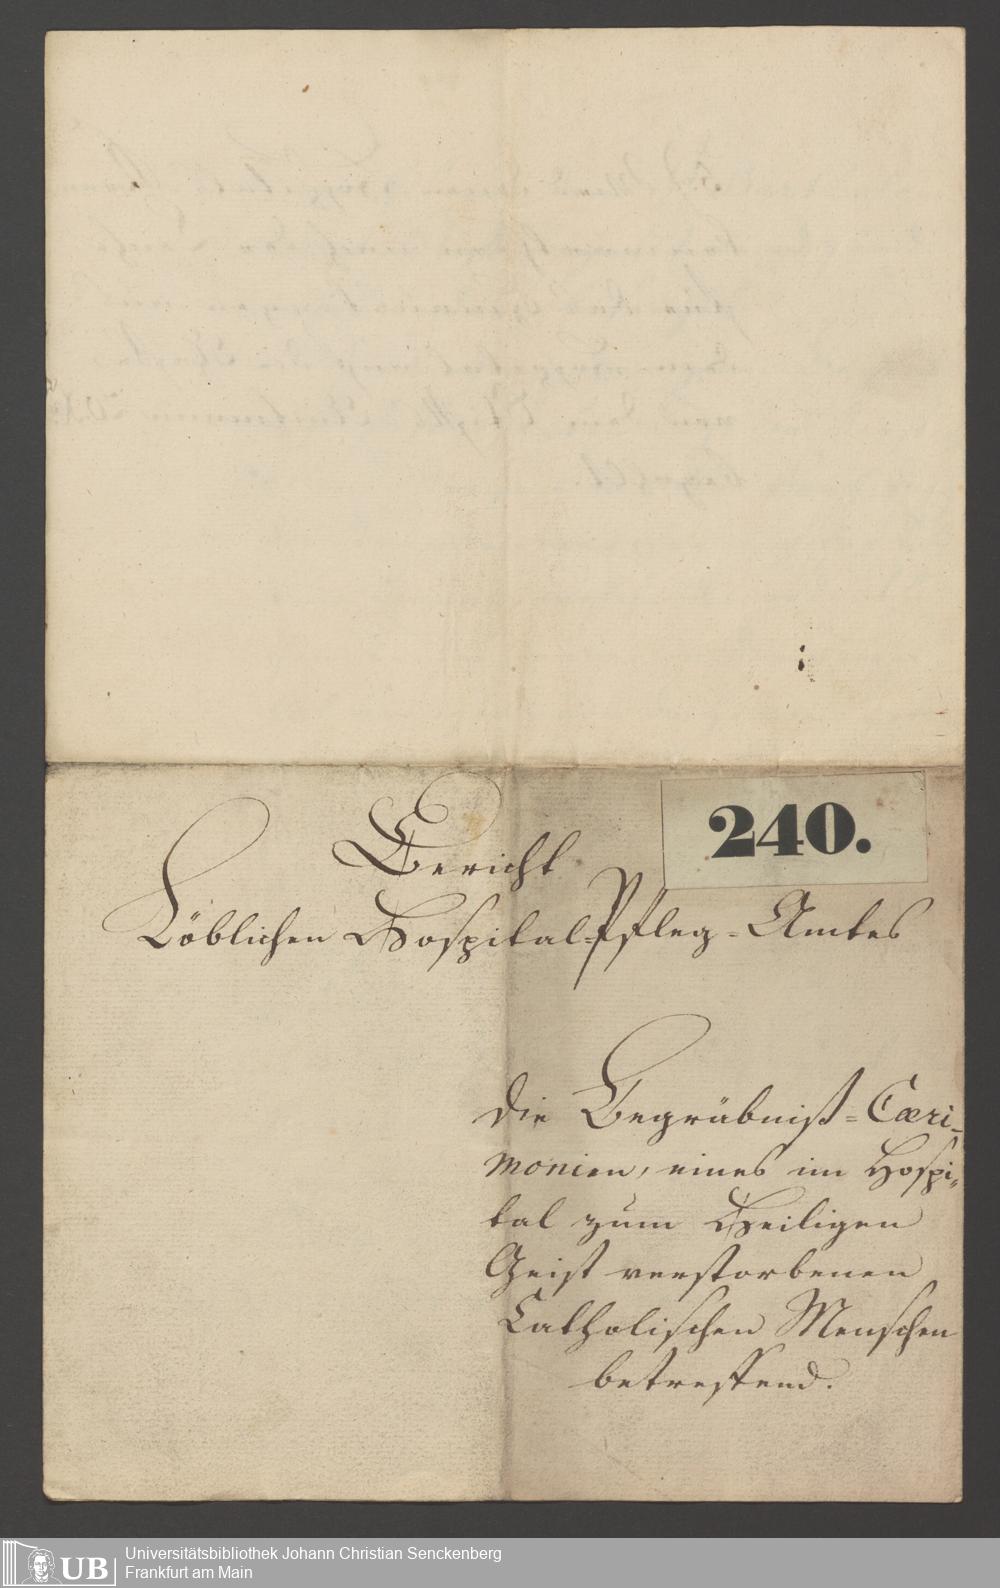 Bericht
240.
Löblichen Hospital-Pfleg-Amtes
die Begräbniß-Cæri-
monien, eines im Hospi-
tal zum Heiligen
Geist verstorbenen
Catholischen Menschen
betreffend.
UB Universitätsbibliothek Johann Christian Senckenberg
Frankfurt am Main